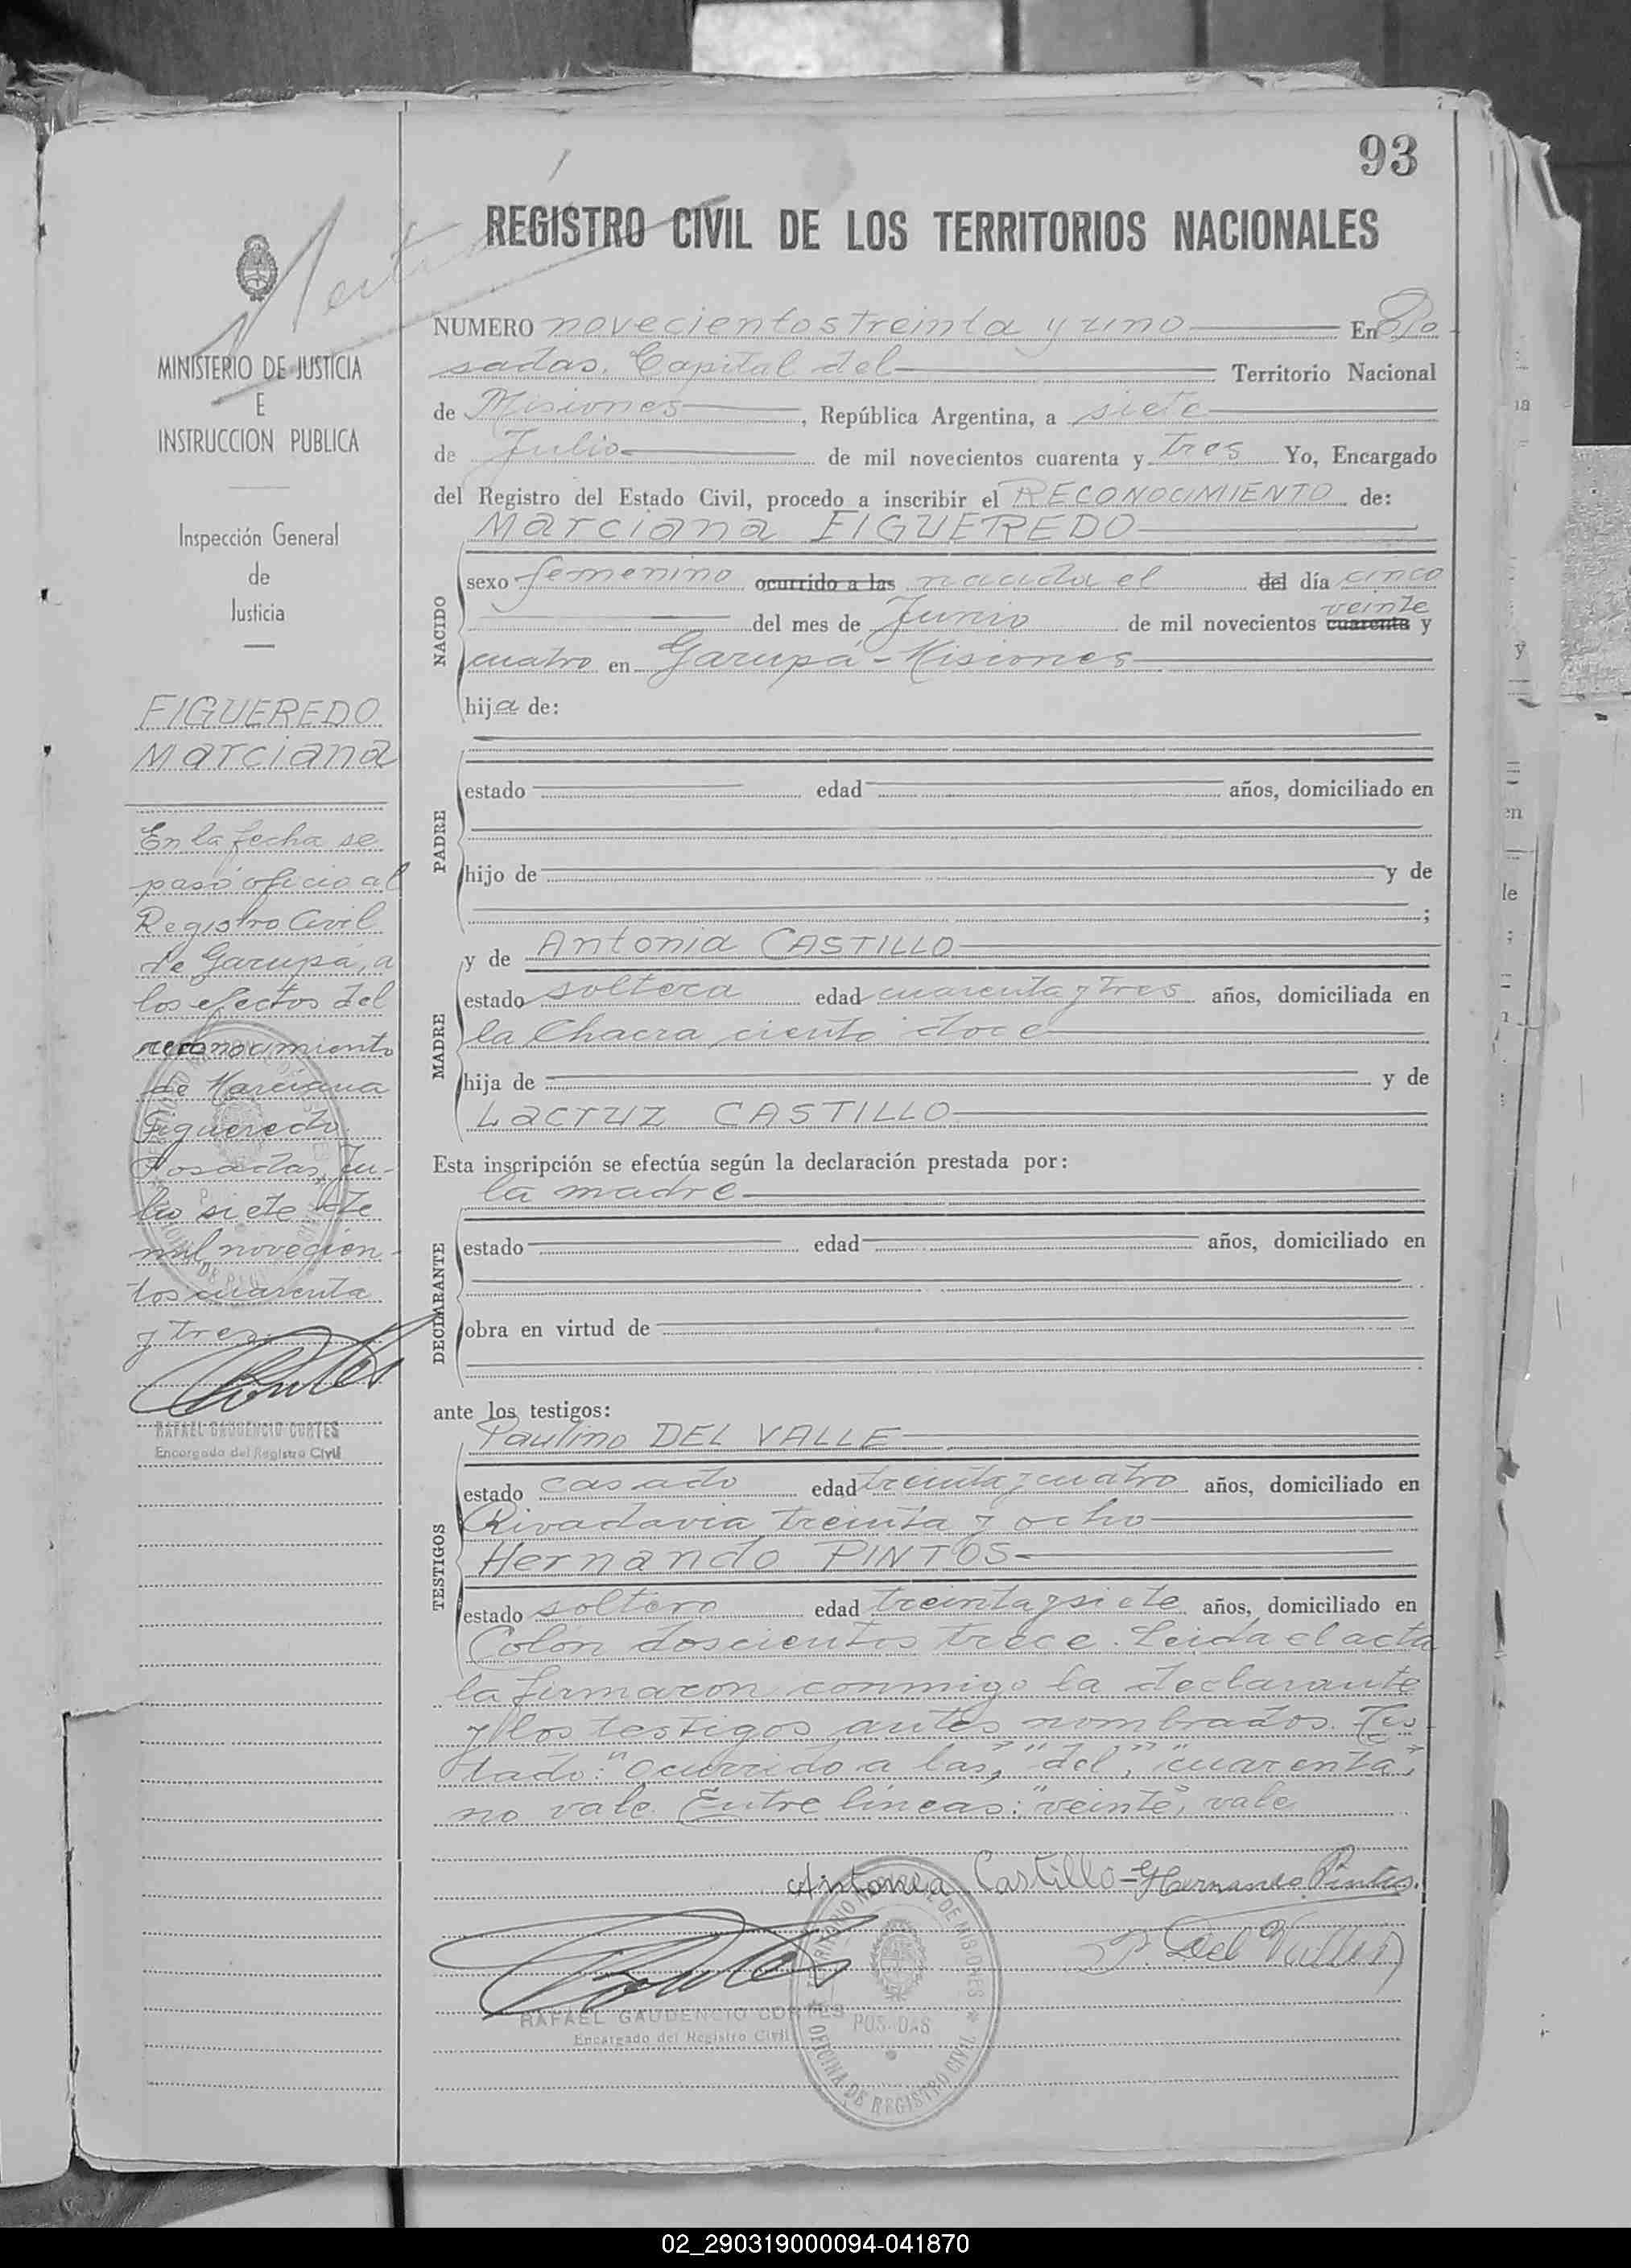 93
REGISTRO CIVIL DE LOS TERRITORIOS NACIONALES
MINISTERIO DE JUSTICIA
E
INSTRUCCION PUBLICA
Inspección General
de
Justicia
FIGUEREDO
Marciana
En la fecha se
pasó oficio al
Registro Civil
de Garupá, a
los efectos del
reconocimiento
de Marciana
Figueredo.
Posadas, Ju-
lio siete de
mil novecien-
tos cuarenta
y tres.
RAFAEL GAUDENCIO CORTES
Encargado del Registro Civil
NUMERO novecientos treinta y uno En Po-
sadas, Capital del Territorio Nacional
de Misiones, República Argentina, a siete
de Julio de mil novecientos cuarenta y tres Yo, Encargado
del Registro del Estado Civil, procedo a inscribir el RECONOCIMIENTO de:
NACIDO
Marciana FIGUEREDO
sexo femenino ocurrido a las nacida el del día cinco
del mes de Junio de mil novecientos cuarenta veinte y
cuatro en Garupá - Misiones
hija de:
PADRE
estado edad años, domiciliado en
hijo de y de
;
MADRE
y de Antonia CASTILLO
estado soltera edad cuarenta y tres años, domiciliada en
la Chacra ciento doce
hija de y de
Lacruz CASTILLO
Esta inscripción se efectúa según la declaración prestada por:
la madre
DECLARANTE
estado edad años, domiciliado en
obra en virtud de
ante los testigos:
TESTIGOS
Paulino DEL VALLE
estado casado edad treinta y cuatro años, domiciliado en
Rivadavia treinta y ocho
Hernando PINTOS
estado soltero edad treinta y siete años, domiciliado en
Colón doscientos trece. Leída el acta
la firmaron conmigo la declarante
y los testigos antes nombrados. Tes-
tado: "ocurrido a las", "del", "cuarenta",
no vale. Entre líneas: "veinte", vale
Antonia Castillo - Hernando Pintos.
P. Del Valle
RAFAEL GAUDENCIO CORTES
Encargado del Registro Civil
TERRITORIO NACIONAL DE MISIONES
POSADAS
OFICINA DE REGISTRO CIVIL
02_290319000094-041870